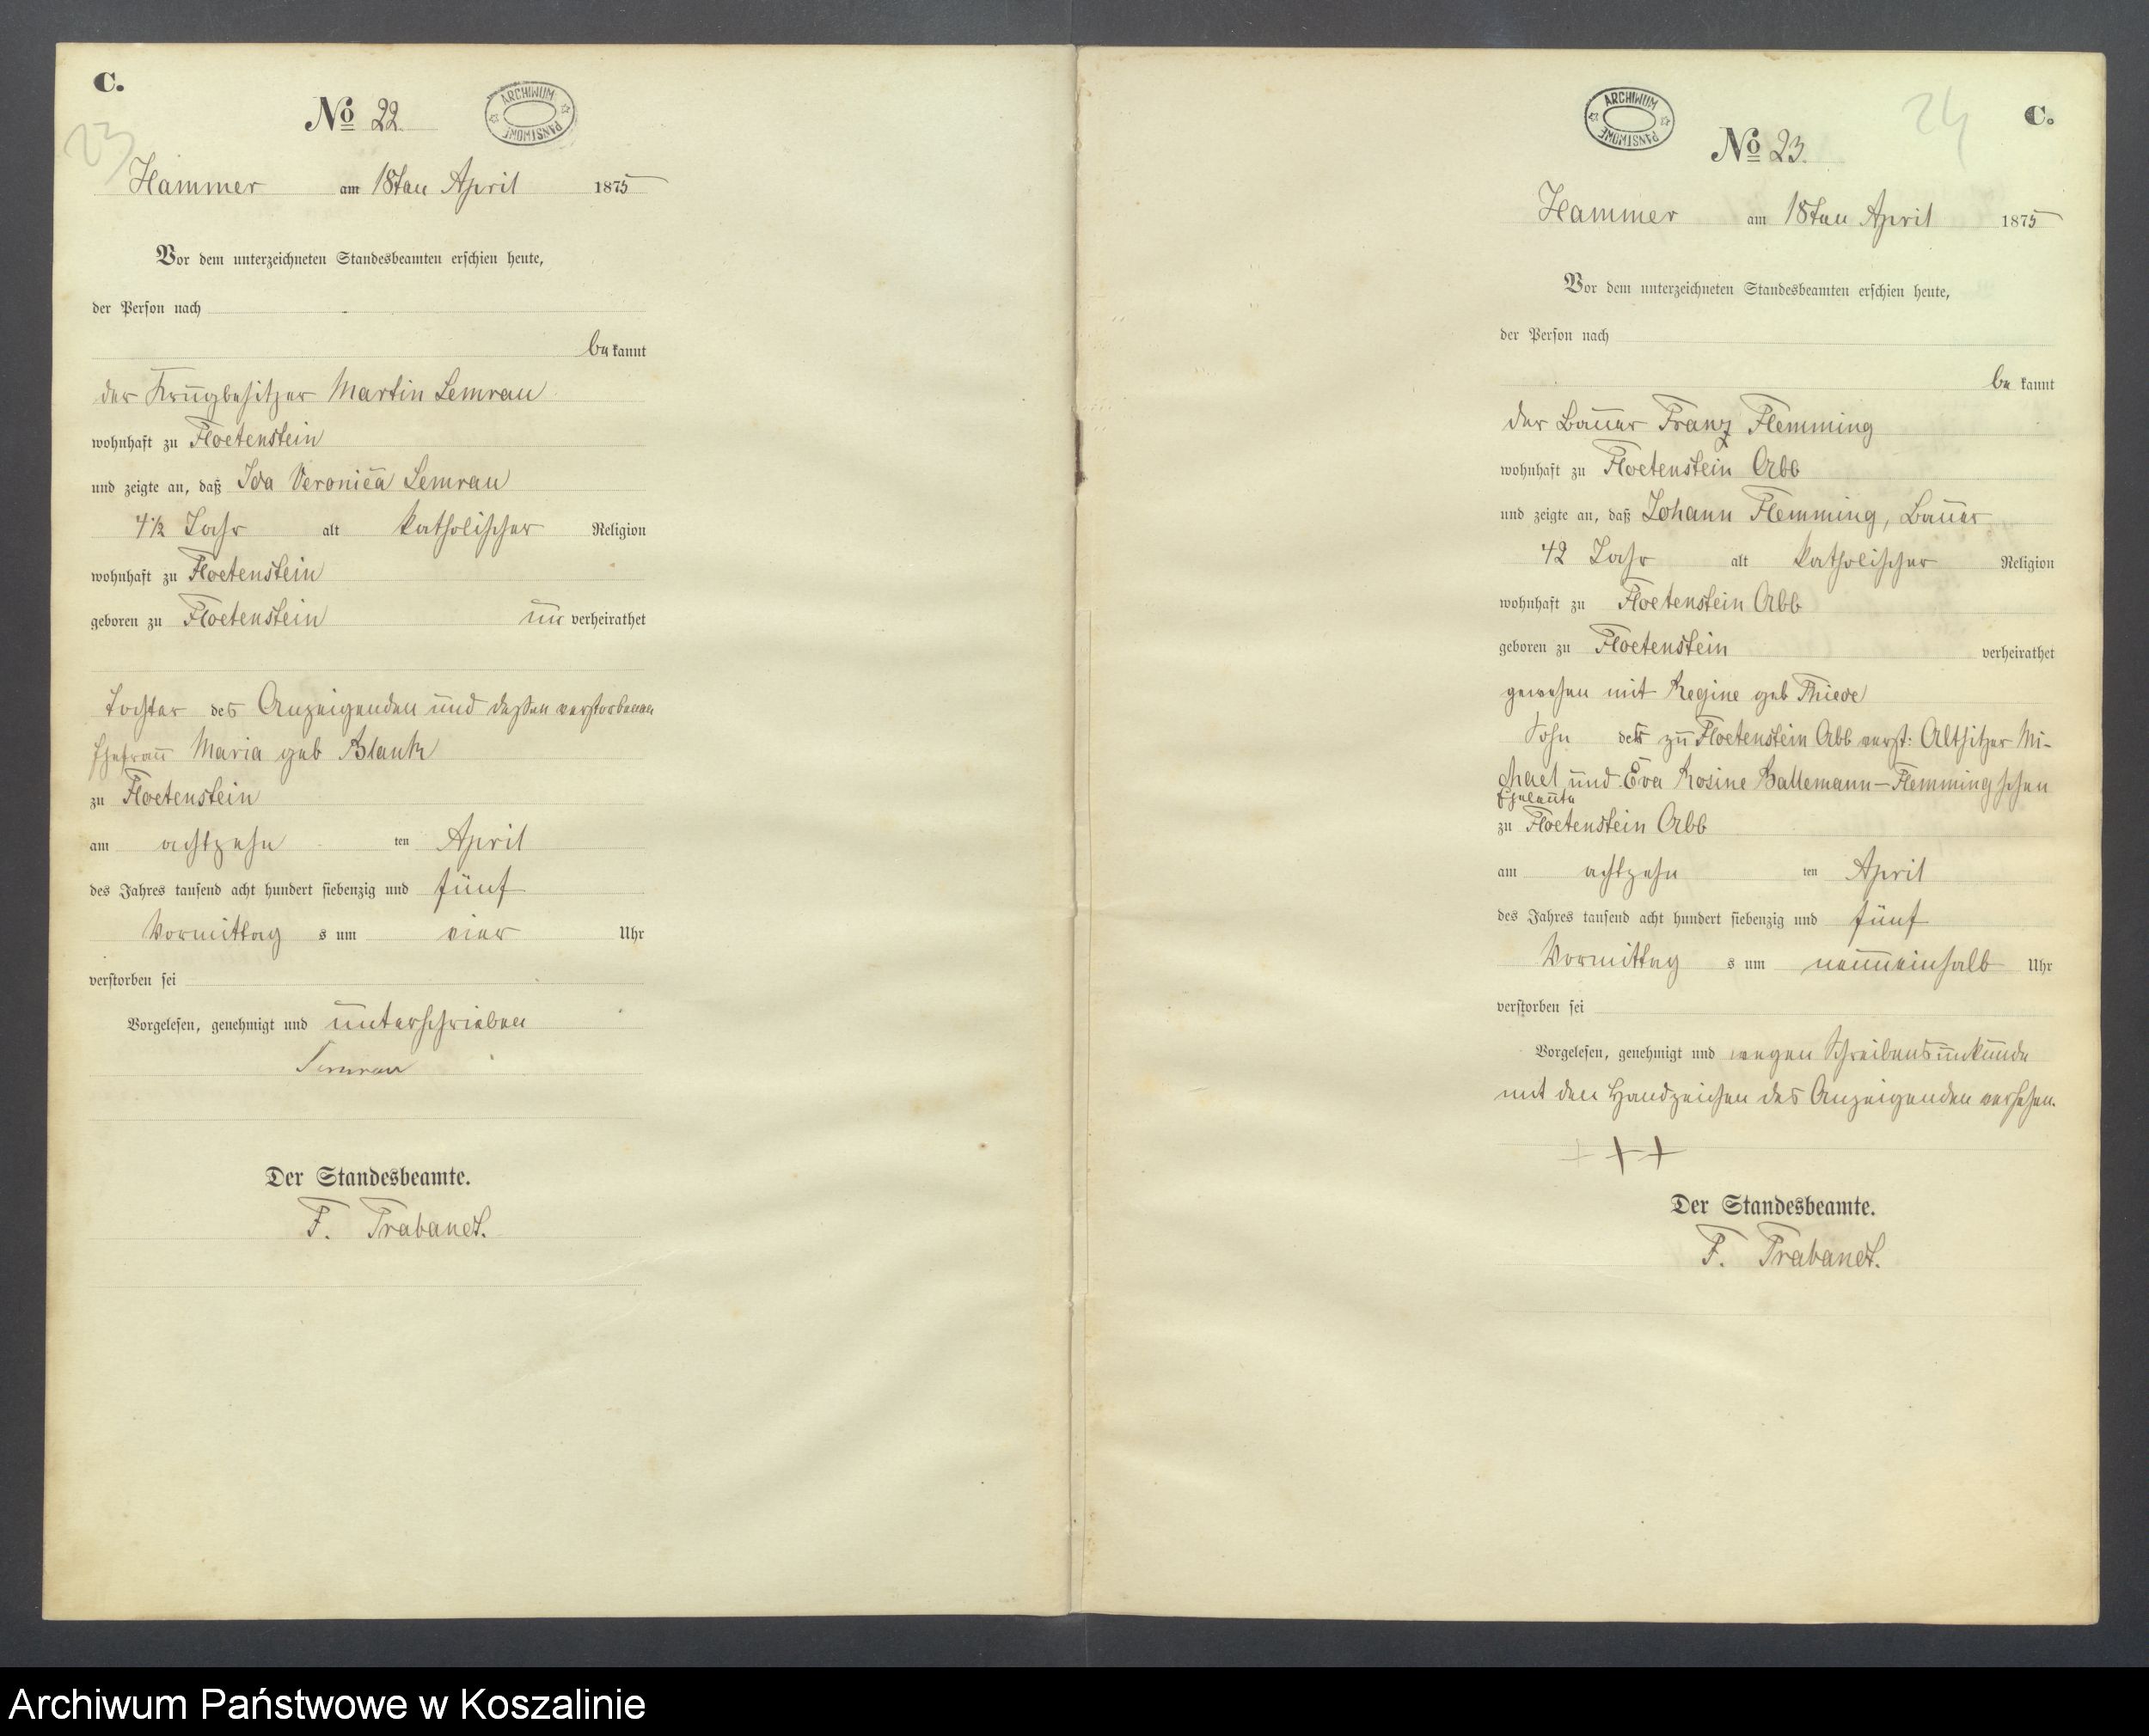 C.
23
No 22.
ARCHIWUM PAŃSTWOWE
Hammer am 18ten April 1875
Vor dem unterzeichneten Standesbeamten erschien heute,
der Person nach
be kannt
der Krugbesitzer Martin Semrau
wohnhaft zu Floetenstein
und zeigte an, daß Ida Veronica Semrau
4½ Jahr alt katholischer Religion
wohnhaft zu Floetenstein
geboren zu Floetenstein un verheirathet
Tochter des Anzeigenden und dessen verstorbenen
Ehefrau Maria geb Blank
zu Floetenstein
am achtzehn ten April
des Jahres tausend acht hundert siebenzig und fünf
Vormittag s um vier Uhr
verstorben sei
Vorgelesen, genehmigt und unterschrieben
Semrau
Der Standesbeamte.
F. Trabandt.
24
C.
ARCHIWUM PAŃSTWOWE
No 23.
Hammer am 18ten April 1875
Vor dem unterzeichneten Standesbeamten erschien heute,
der Person nach
be kannt
der Bauer Franz Flemming
wohnhaft zu Floetenstein Abb
und zeigte an, daß Johann Flemming, Bauer
42 Jahr alt katholischer Religion
wohnhaft zu Floetenstein Abb
geboren zu Floetenstein verheirathet
gewesen mit Regine geb Thiede
Sohn der zu Floetenstein Abb verst: Altsitzer Mi-
chael und Eva Rosine Ballemann-Flemmingschen
Eheleute
zu Floetenstein Abb
am achtzehn ten April
des Jahres tausend acht hundert siebenzig und fünf
Vormittag s um neuneinhalb Uhr
verstorben sei
Vorgelesen, genehmigt und wegen Schreibensunkunde
mit den Handzeichen des Anzeigenden versehen.
+++
Der Standesbeamte.
F. Trabandt.
Archiwum Państwowe w Koszalinie